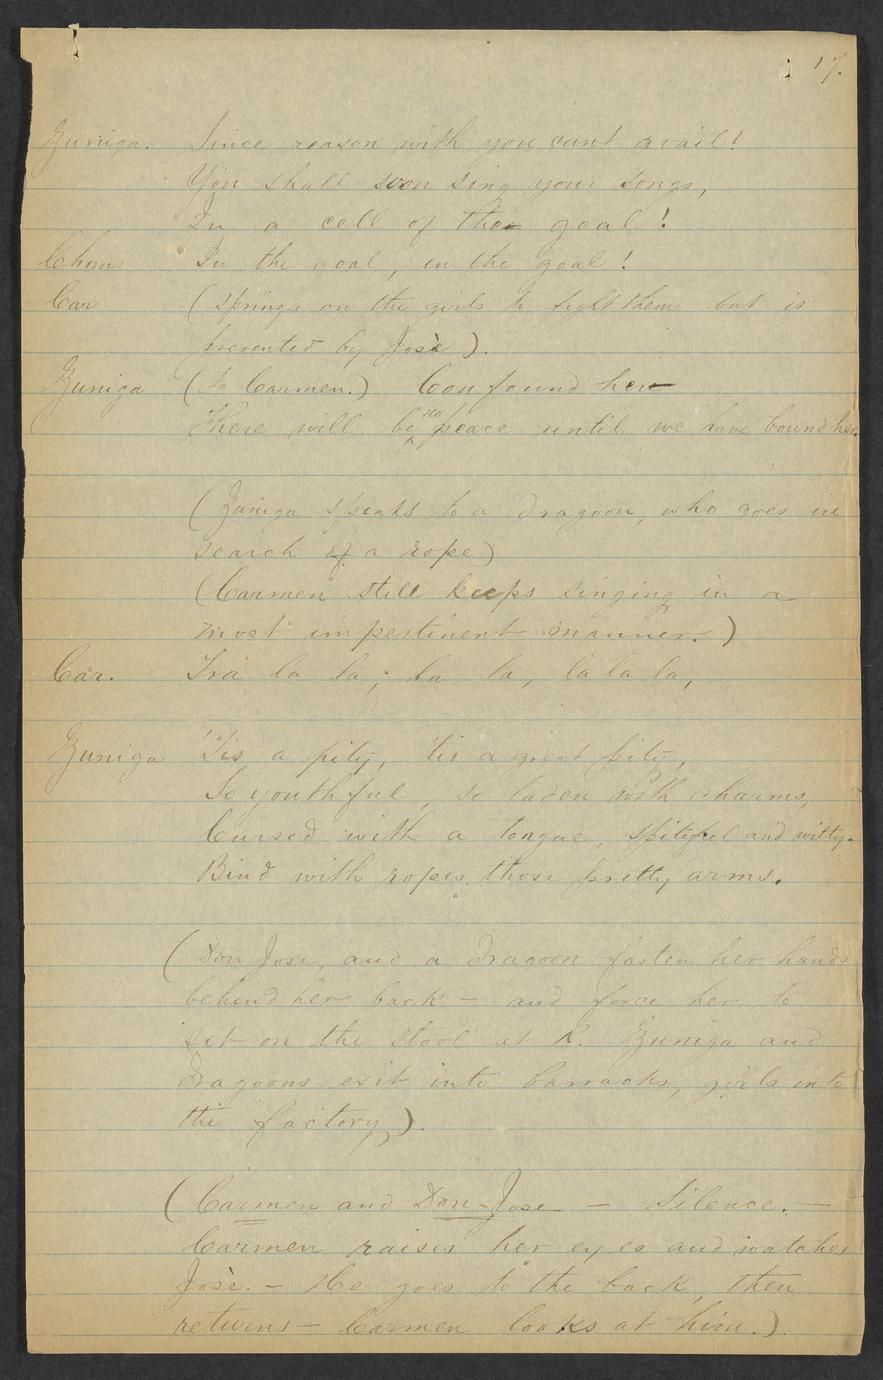 17.
Zuniga. Since reason with you cant avail!
You shall soon sing your songs,
In a cell of the goal!
Chour In the goal, in the goal!
Car (Springs on the girls to fight them but is
prevented by Josè).
Zuniga (To Carmen.) Confound her
There will be no peace until we have bound her.
(Zuniga speaks to a dragoon, who goes in
search of a rope)
(Carmen still keeps singing in a
most impertinent manner.)
Car. Tra la la; la la, la la la,
Zuniga 'Tis a pity, 'tis a great pity,
So youthful, so laden with charms,
Cursed with a tongue, spiteful and witty.
Bind with ropes those pretty arms.
(Don Jose, and a dragoon fasten her hands
behind her back – and force her to
sit on the stool at R. Zuniga and
dragoons exit into barracks, girls into
the factory).
(Carmen and Don Jose – Silence. –
Carmen raises her eyes and watches
Josè. – He goes to the back, then
returns – Carmen looks at him.)